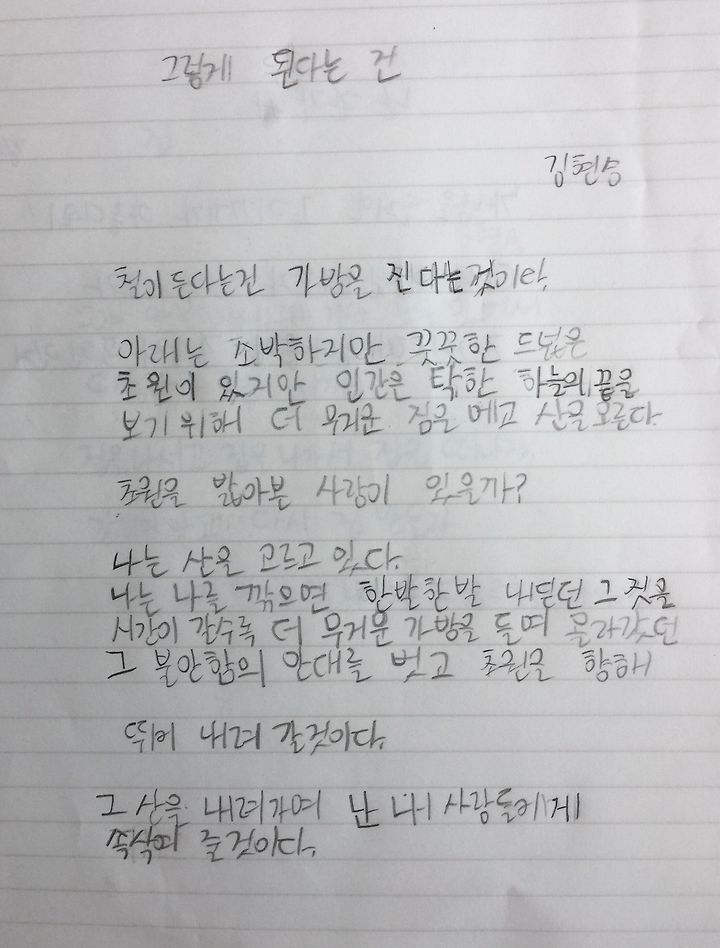 그렇게 된다는 건
김현승
철이 든다는건 가방을 진다는것이다.
아래는 소박하지만 끗끗한 드넓은
초원이 있지만 인간은 탁한 하늘의 끝을
보기 위해 더 무거운 짐을 메고 산을 오른다.
초원을 밟아본 사람이 있을까?
나는 산을 고르고 있다.
나는 나를 깎으면 한발한발 내딛던 그 짓을
시간이 갈수록 더 무거운 가방을 들며 올라갔던
그 불안함의 안대를 벗고 초원을 향해
뛰어 내려 갈것이다.
그 산을 내려가며 난 내 사랑들에게
쏙삭여 줄것이다.